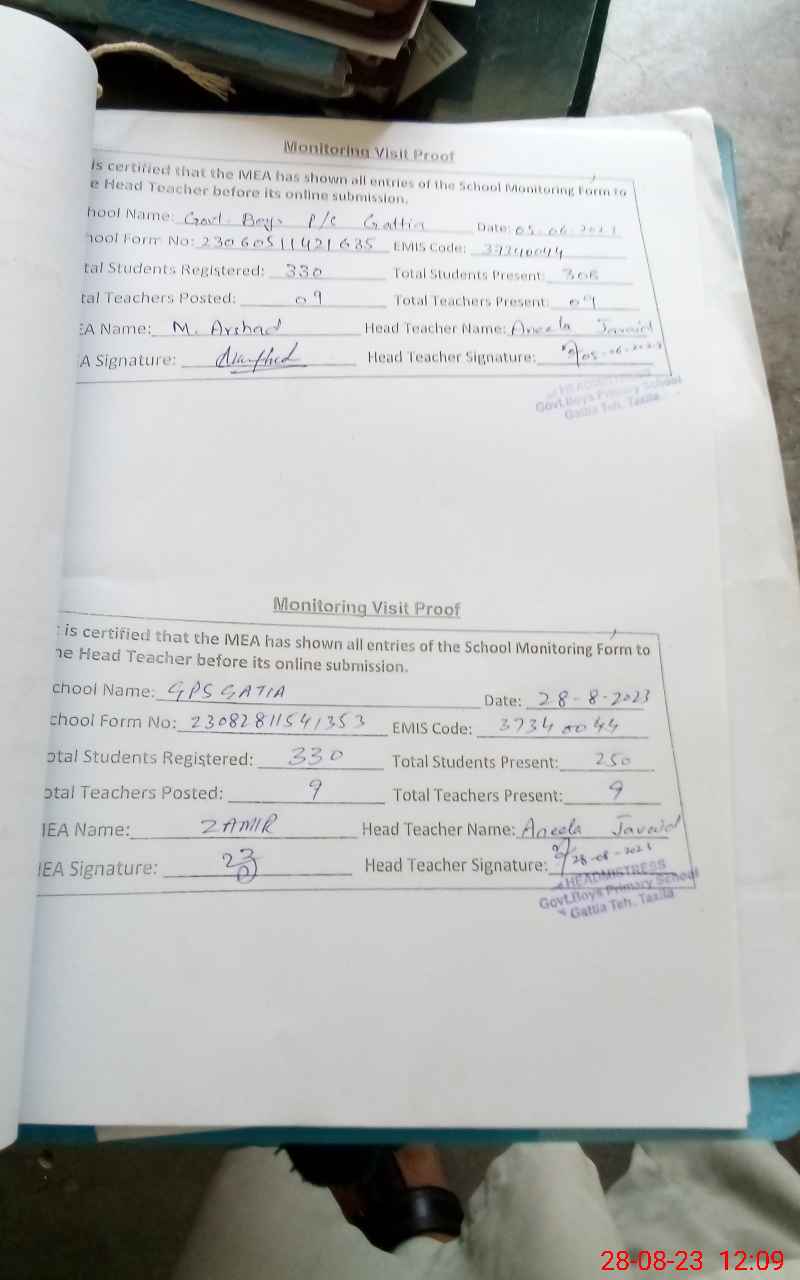 Monitoring Visit Proof
is certified that the MEA has shown all entries of the School Monitoring Form to
e Head Teacher before its online submission.
hool Name: Govt. Boys P/S Gattia Date: 05-06-2023
hool Form No: 23060511421635 EMIS Code: 37340044
tal Students Registered: 330 Total Students Present: 308
tal Teachers Posted: 09 Total Teachers Present: 09
EA Name: M. Arshad Head Teacher Name: Aneela Javaid
A Signature: Head Teacher Signature: 05-06-2023
HEADMISTRESS
Govt.Boys Primary School
Gattia Teh. Taxila
Monitoring Visit Proof
t is certified that the MEA has shown all entries of the School Monitoring Form to
he Head Teacher before its online submission.
chool Name: GPS GATIA Date: 28-8-2023
chool Form No: 23082811541353 EMIS Code: 37340044
otal Students Registered: 330 Total Students Present: 250
otal Teachers Posted: 9 Total Teachers Present: 9
MEA Name: ZAMIR Head Teacher Name: Aneela Javaid
MEA Signature: Head Teacher Signature: 28-08-2023
HEADMISTRESS
Govt.Boys Primary School
Gattia Teh. Taxila
28-08-23 12:09